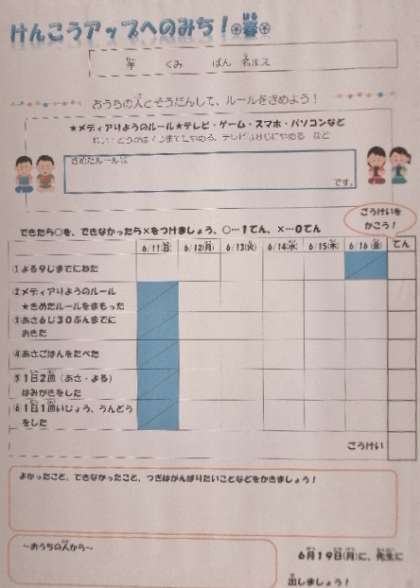 けんこうアップへのみち！春
年 くみ ばん 名まえ
おうちの人とそうだんして、ルールをきめよう！
★メディアりようのルール★テレビ・ゲーム・スマホ・パソコンなど
きめたルール
です。
ごうけいを
かこう！
できたら○を、できなかったら×をつけましょう、○…1てん、×…0てん
6/11(日) 6/12(月) 6/13(火) 6/14(水) 6/15(木) 6/16(金) てん
①よる9じまでにねた
②メディアりようのルール
★きめたルールをまもった
③あさ6じ30ぷんまでに
おきた
④あさごはんをたべた
⑤1日2回（あさ・よる）
はみがきをした
⑥1日1回いじょう、うんどう
をした
ごうけい
よかったこと、できなかったこと、つぎはがんばりたいことなどをかきましょう！
～おうちの人から～
6月19日(月)に、先生に
出しましょう！